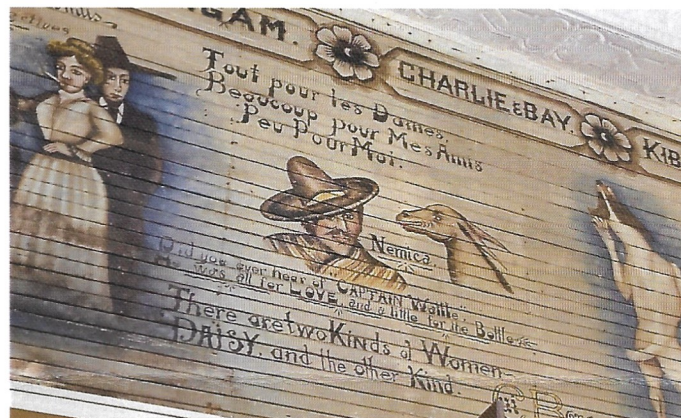 GAM.
CHARLIE & BAY.
KIB
Tout pour les Dames,
Beaucoup pour Mes Amis
Peu Pour Moi.
Nemica
Did you ever hear of CAPTAIN Wattle
He was all for LOVE, and a little for the Bottle
There are two Kinds of Women
DAISY. and the other Kind.